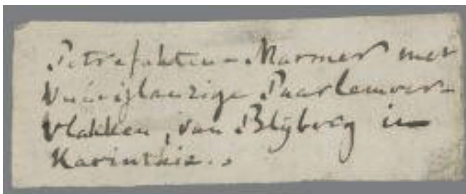 Petrefakten-Marmer met
vuurglanzige Paarlemoer-
vlakken, van Blijberg in
Karinthie.